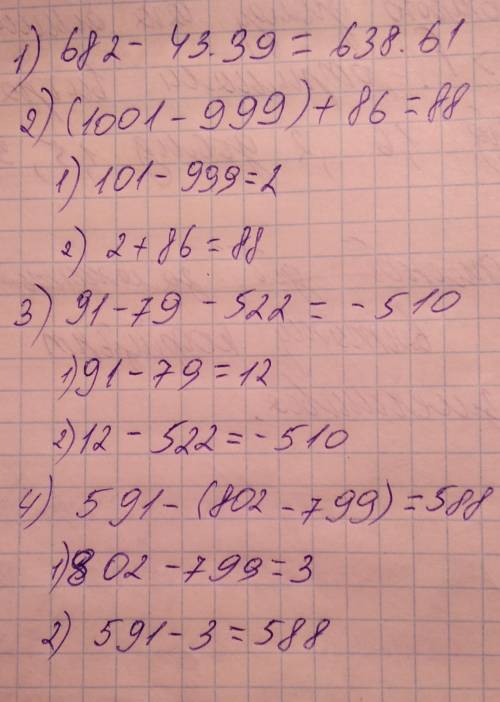 1) 682 - 43.39 = 638.61
2) (1001 - 999) + 86 = 88
1) 101 - 999 = 2
2) 2 + 86 = 88
3) 91 - 79 - 522 = - 510
1) 91 - 79 = 12
2) 12 - 522 = - 510
4) 591 - (802 - 799) = 588
1) 802 - 799 = 3
2) 591 - 3 = 588